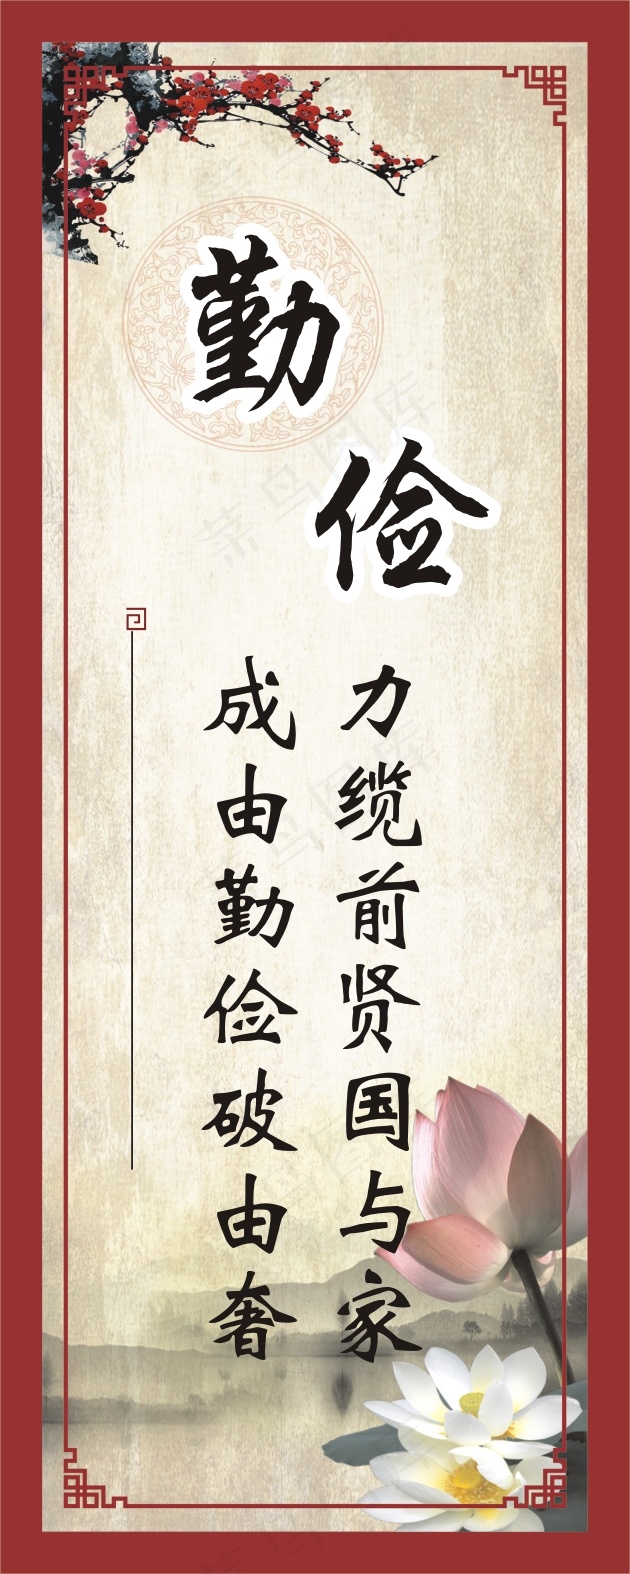 勤俭
力缆前贤国与家
成由勤俭破由奢
菜鸟图库